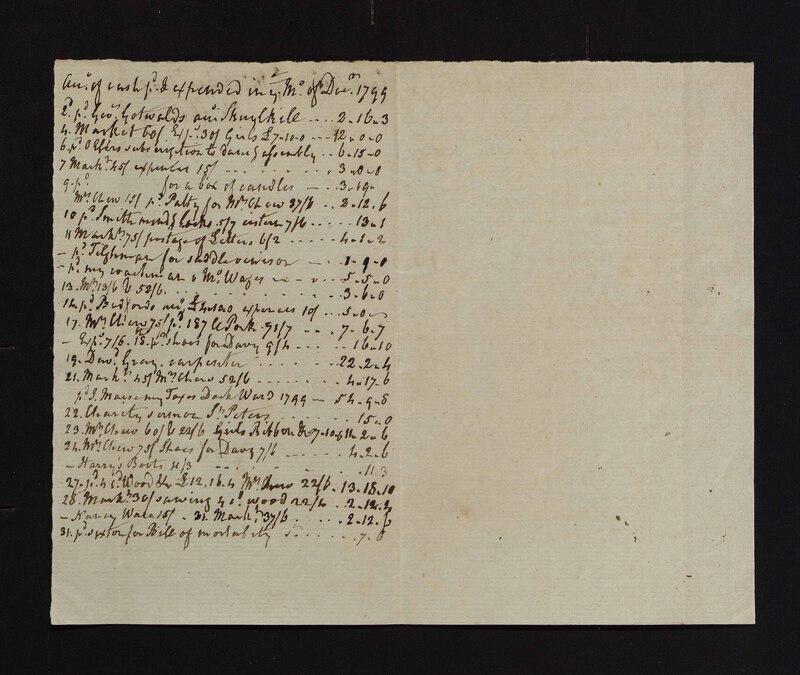 Acct of cash pd & expended in ye Mo of Decm 1799
2. pd Geo Gotwalds acct Skuylkill --- 2-16-3
4. Market 60/ Exps 30/ Girls £7-10-0 --- 12-0-0
6. pd subscription to danc'g assembly .. 6-15-0
7 Markt 45/ expences 15/ - - - - . 3-0-0
9. pd for a box of candles - . . 3-19-
Mrs Chew 15/ pd Patty for Mrs Chew 37/6 .. 2-12.6
10 pd Smith mends locks 5/7 cistern 7/6 .... 13-1
11 Markt 75/ postage of Letters 6/2 ..... 4-1-2
- pd Tilghman for saddle - - 1-9-0
- pd my coachman a Mo Wages - - - 5-5-0
13. Mrs 13/6 & 52/6. . . . . . . . . . 3-6-0
14. pd Bedfords acct £4 10 0 expences 10/ .. 5-0-0
17. Mrs Chew 75/ pd 187 lb Pork 71/7 -- 7-6-7
- Exps 7/6. 18. pd shoes for Davy 9/4 ---- 16-10
19. Davd Gray, carpenter ........ 22-2-4
21. Markt 45/ Mrs Chew 52/6 ....... 4-17-6
pd J. my Taxes Dock Ward 1799 - 54-9-8
22. Charity sermon St Peters ....... 15-0
23. Mrs Chew 60/ & 22/6 Girls Ribbon &c 7-10-0 11-2-6
24. Mrs Chew 75/ Shoes for Davy 7/6 ---- 4-2-6
- Harry's Boots 11/3 . . . . . . . . . 11.3
27. pd 4 cd Wood &c £12.16.4 Mrs Chew 22/6 - 13-18-10
28. Markt 30/ sawing 4 cd wood 22/4 .. 2-12-4
- Nancy Wale 15/ - 31. Markt 37/6 ..... 2-12.6
31. pd sexton for Bill of mortality ...... 7-6